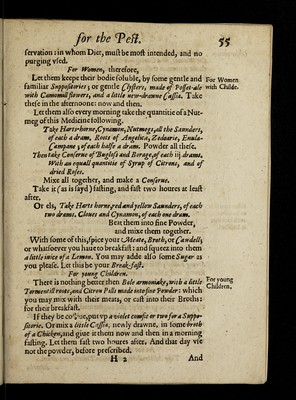 for the Pest. 55
servation: in whom Diet, must be most intended, and no
purging vsed.
For Women, therefore,
Let them keepe their bodie soluble, by some gentle and
familiar Suppositories; or gentle Clysters, made of Posset-ale
with Camomill flowers, and a little new-drawne Cassia. Take
these in the afternoone: now and then.
For Women
with Childe.
Let them also every morning take the quantitie of a Nut-
meg of this Medicine following.
Take Harts-horne, Cynamon, Nutmegs, all the Saunders,
of each a dram, Roots of Angelica, Zedoarie, Enula-
Campane; of each halfe a dram. Powder all these.
Then take Conserue of Buglosse and Borage, of each iij drams,
With an equall quantitie of Syrup of Citrons, and of
dried Roses.
Mixe all together, and make a Conserue.
Take it (as is sayd) fasting, and fast two houres at least
after.
Or els, Take Harts horne, red and yellow Saunders, of each
two drams. Cloues and Cynamon, of each one dram.
Beat them into fine Powder,
and mixe them together.
With some of this, spice your Meate, Broth, or Cawdels,
or whatsoever you haue to breakfast: and squeez into them
a little iuice of a Lemon. You may adde also some Sugar as
you please. Let this be your Break-fast.
For young Children.
There is nothing better then Bole armoniake, with a little
Tormentill roote, and Citron Pills made into fine Powder: which
you may mix with their meats, or cast into their Broths:
for their breakfast.
For young
Children.
If they be costiue, put vp a violet comfit or two for a Suppo-
sitorie. Or mix a little Cassia, newly drawne, in some broth
of a Chicken, and giue it them now and then in a morning
fasting. Let them fast two houres after. And that day vse
not the powder, before prescribed.
H 2 And